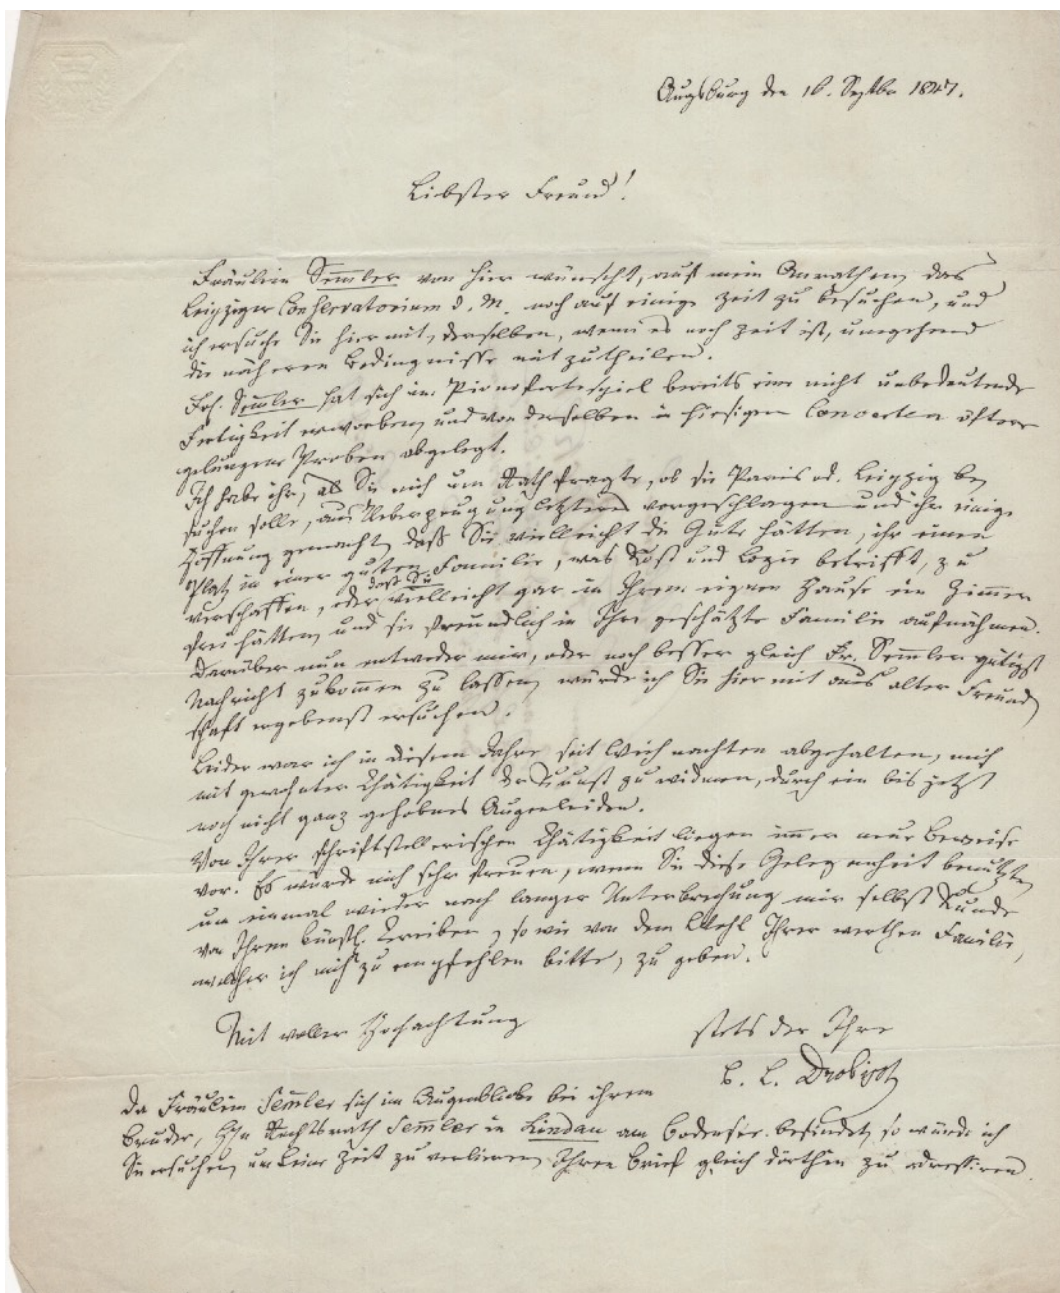 Augsburg den 16. Septbr 1847.
Liebster Freund!
Fräulein Semler von hier wünscht, auf mein Anrathen, das
Leipziger Conservatorium d. M. noch auf einige Zeit zu besuchen, und
ich ersuche Sie hiermit, derselben, wenn es noch Zeit ist, umgehend
die näheren Bedingnisse mitzutheilen.
Frl. Semler hat sich im Pianofortespiel bereits eine nicht unbedeutende
Fertigkeit erworben, und von derselben in hiesigen Concerten öftere
gelungene Proben abgelegt.
Ich habe ihr, als Sie mich um Rath fragte, ob sie Paris od. Leipzig be
suchen solle, aus Ueberzeugung letzteres vorgeschlagen und ihr einige
Hoffnung gemacht, daß Sie vielleicht die Güte hätten, ihr einen
Platz in einer guten Familie, was Kost und Logie betrifft, zu
verschaffen, oder daß Sie vielleicht gar in Ihrem eignen Hause ein Zimmer
frei hätten, und sie freundlich in Ihre geschätzte Familie aufnähmen.
Darüber nun entweder mir, oder noch besser gleich Fr. Semler gütigst
Nachricht zukommen zu lassen, würde ich Sie hiermit aus alter Freund
schaft ergebenst ersuchen.
Leider war ich in diesem Jahre seit Weihnachten abgehalten, mich
mit gewohnter Thätigkeit der Kunst zu widmen, durch ein bis jetzt
noch nicht ganz gehobnes Augenleiden.
Von Ihrer schriftstellerischen Thätigkeit liegen immer neue Beweise
vor. Es würde mich sehr freuen, wenn Sie diese Gelegenheit benutzten,
um einmal wieder nach langer Unterbrechung mir selbst Kunde
von Ihrem künstl. Treiben, so wie von dem Wohl Ihrer werthen Familie,
welcher ich mich zu empfehlen bitte, zu geben.
Mit voller Hochachtung
stets der Ihre
C. L. Drobisch
Da Fräulein Semler sich im Augenblicke bei ihrem
Bruder, Hrn Rechtsrath Semler in Lindau am Bodensee befindet, so würde ich
Sie ersuchen, um keine Zeit zu verlieren, Ihren Brief gleich dorthin zu adressiren.